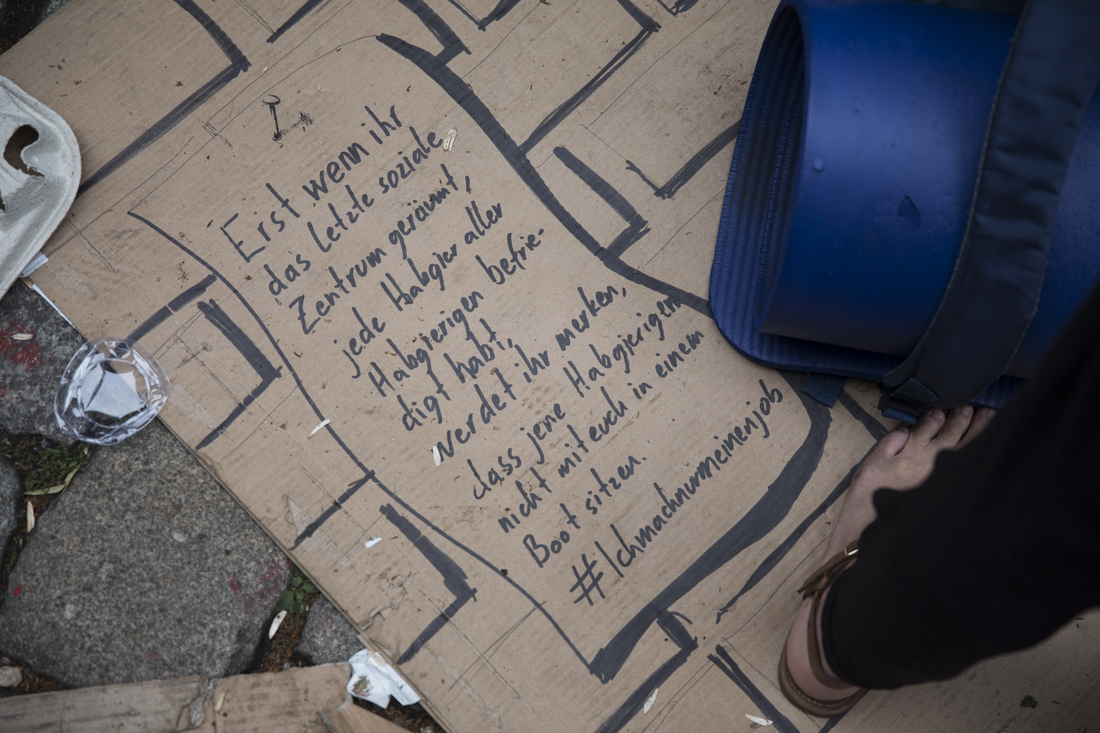 Erst wenn ihr
das letzte soziale
Zentrum geräumt,
jede Habgier aller
Habgierigen befrie-
digt habt,
werdet ihr merken,
dass jene Habgierigen
nicht mit euch in einem
Boot sitzen.
#Ichmachnurmeinenjob